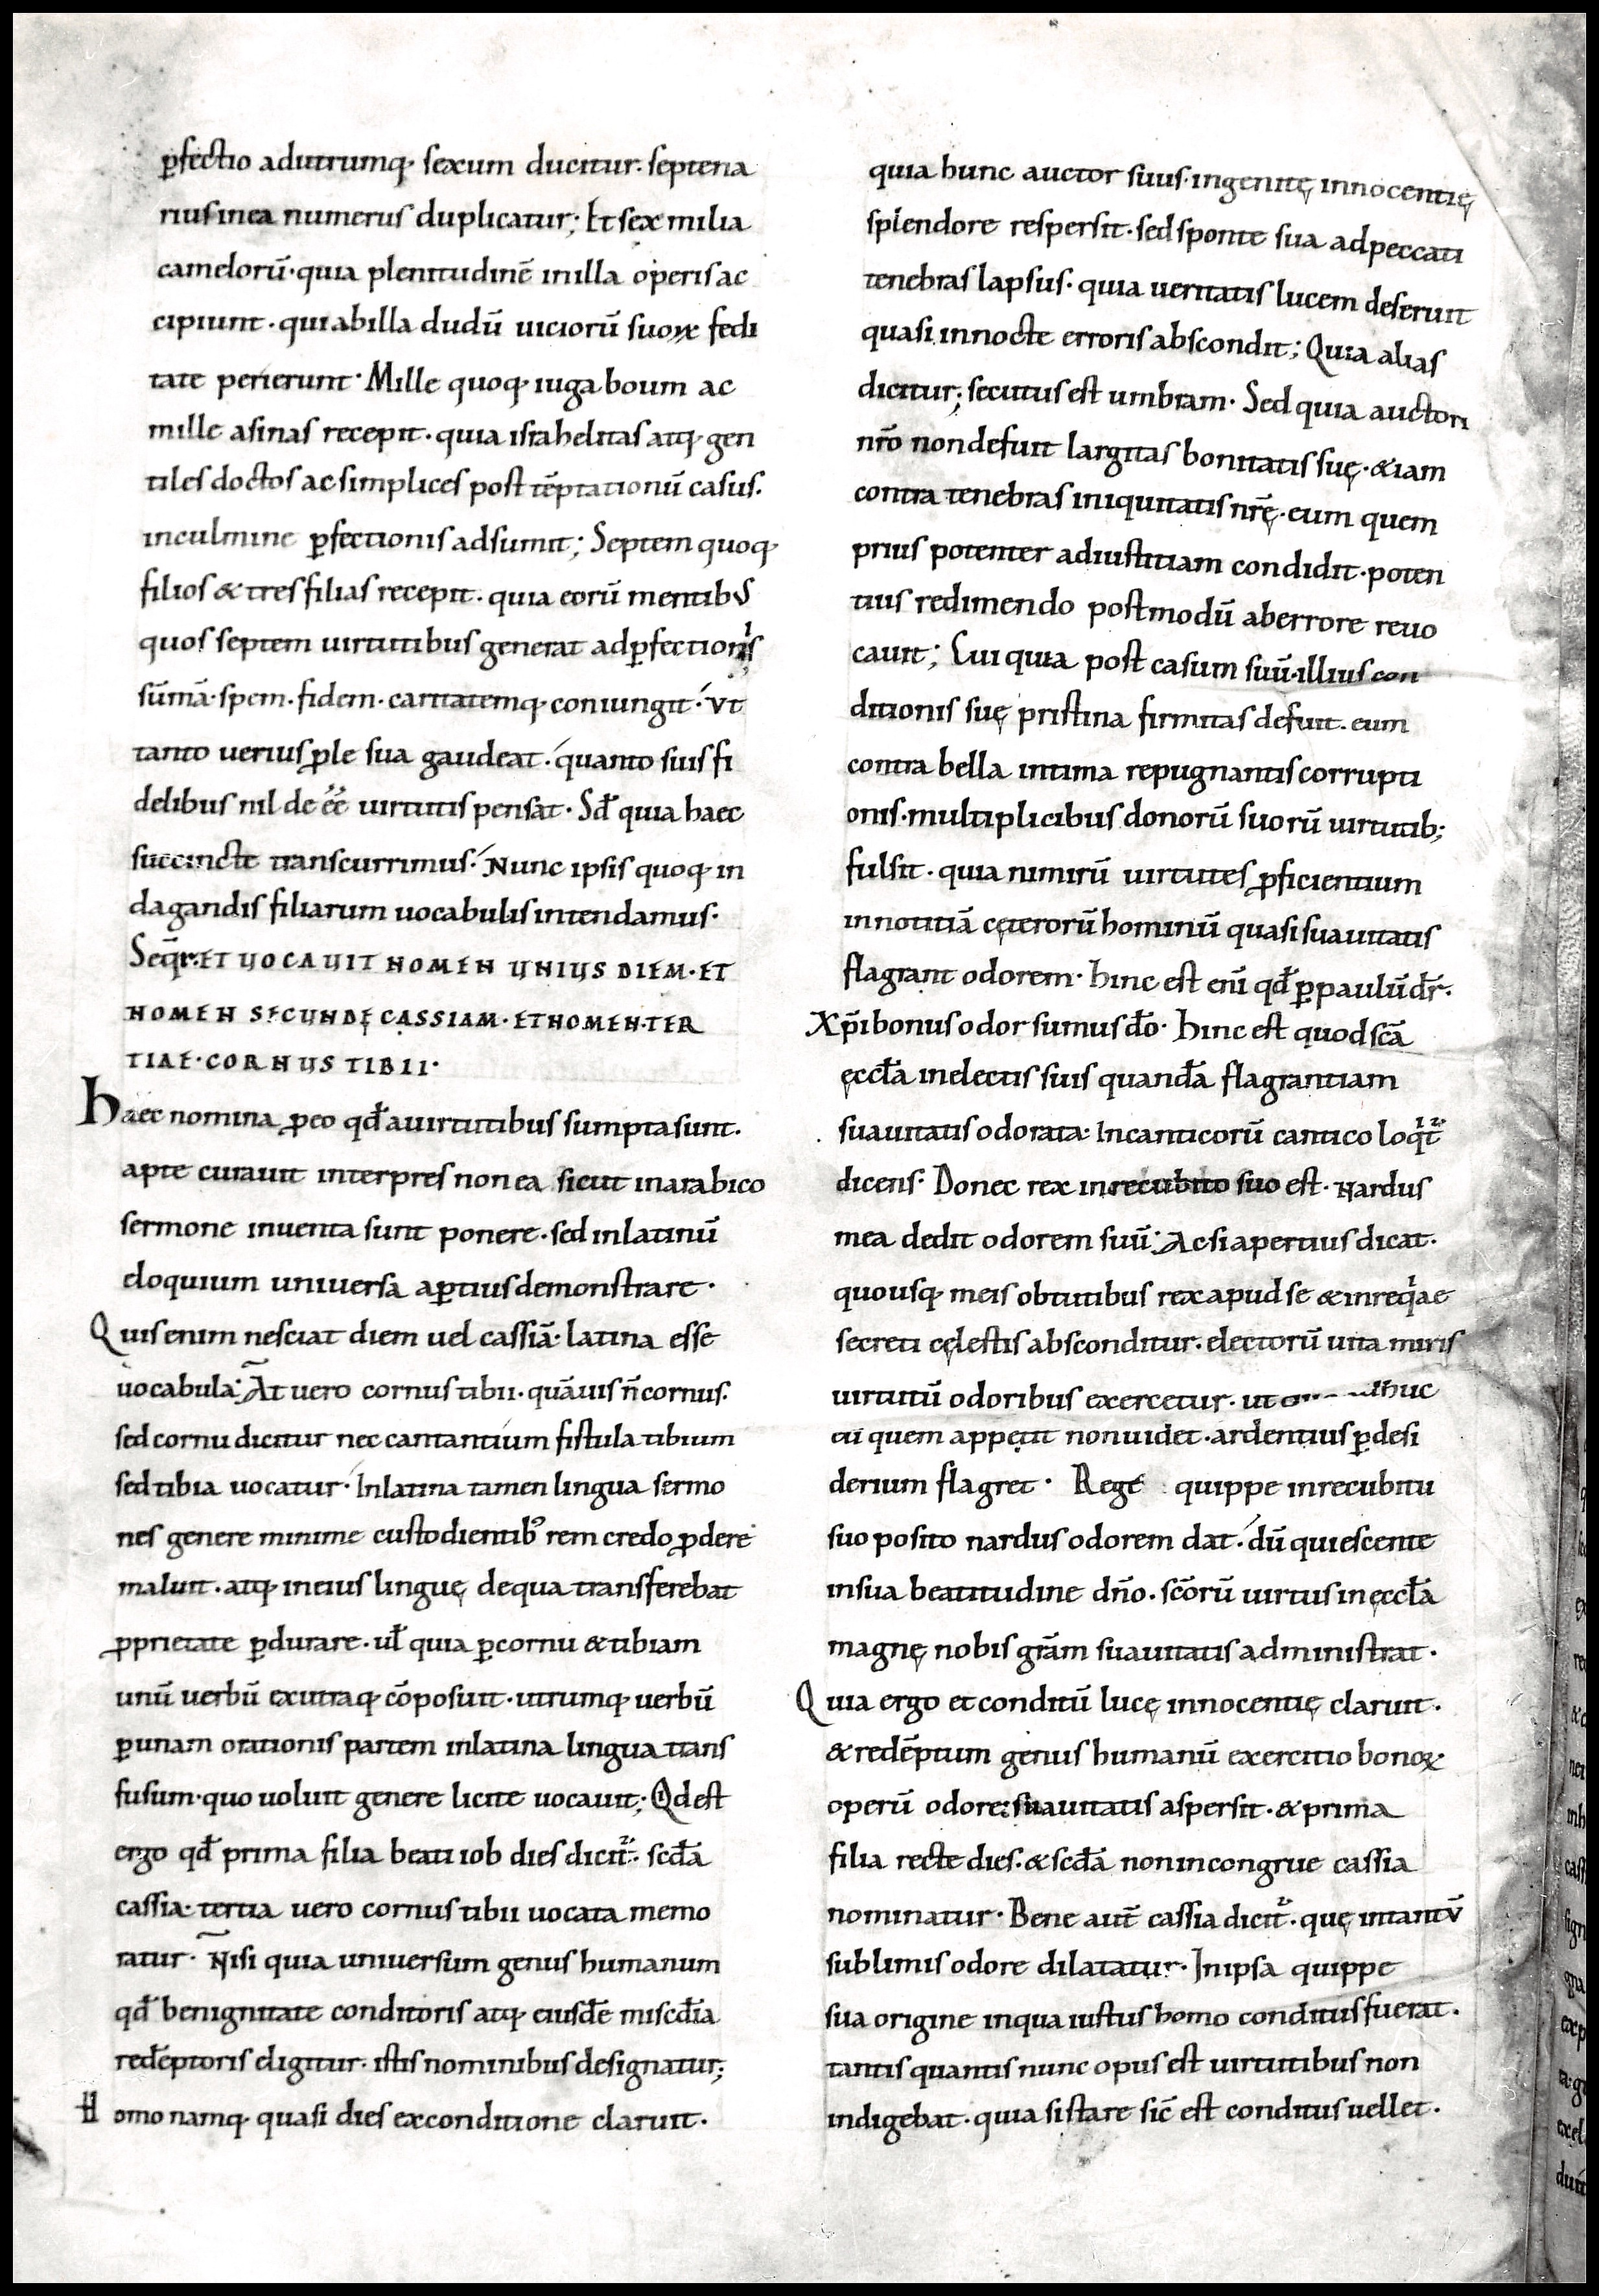 ꝑfectio adutrumq; sexum ducitur. septena
rius inea numerus duplicatur; Et sex milia
camelorū. quia plenitudinē inilla operis ac
cipiunt. qui abilla dudū uiciorū suoꝝ fedi
tate perierunt. Mille quoq; iuga boum ac
mille asinas recepit. quia israhelitas atq; gen
tiles doctos ac simplices post tēptationū casus.
inculmine ꝑfectionis adsumit; Septem quoq;
filios & tres filias recepit. quia eorū mentibus
quos septem uirtutibus generat adꝑfectionis
sūmā. spem. fidem. caritatemq; coniungit. Vt
tanto uerius ꝓle sua gaudeat. quanto suis fi
delibus nil deēē uirtutis pensat. Sđ quia haec
succincte transcurrimus. Nunc ipsis quoq; in
dagandis filiarum uocabulis intendamus.
Seqr̄. ET UOCAUIT NOMEN UNIUS DIEM. ET
NOMEN SECUNDĘ CASSIAM. ET NOMEN TER
TIAE. CORNUS TIBII.
Haec nomina ꝓeo qđ auirtutibus sumpta sunt.
apte curauit interpres non ea sicut inarabico
sermone inuenta sunt ponere. sed inlatinū
eloquium uniuersa aꝑtius demonstrare.
Quis enim nesciat diem uel cassiā. latina esse
uocabula. At uero cornus tibii. quāuis n̄ cornus.
sed cornu dicitur nec cantantium fistula tibium
sed tibia uocatur. Inlatina tamen lingua sermo
nes genere minime custodientibꝰ rem credo ꝓdere
maluit. atq; ineius linguę dequa transferebat
ꝓprietate ꝑdurare. uł quia ꝑcornu & tibiam
unū uerbū exutraq; cōposuit. utrumq; uerbū
ꝑunam orationis partem inlatina lingua trans
fusum. quo uoluit genere licite uocauit; Qd est
ergo qđ prima filia beati iob dies dicit̄. scđa
cassia. tertia uero cornus tibii uocata memo
ratur. Nisi quia uniuersum genus humanum
qđ benignitate conditoris atq; eiusdē miscđia
redēptoris eligitur. istis nominibus designatur;
Homo namq; quasi dies exconditione claruit.
quia hunc auctor suus. ingenitę innocentię
splendore respersit. sed sponte sua adpeccati
tenebras lapsus. quia ueritatis lucem deseruit
quasi innocte erroris abscondit; Quia alias
dicitur; secutus est umbram. Sed quia auctori
nrō non defuit largitas bonitatis suę. &iam
contra tenebras iniquitatis nrę̄. eum quem
prius potenter adiustitiam condidit. poten
tius redimendo postmodū aberrore reuo
cauit; Cui quia post casum suū. illius con
ditionis suę pristina firmitas defuit. eum
contra bella intima repugnantis corrupti
onis. multiplicibus donorū suorū uirtutib;
fulsit. quia nimirū uirtutes ꝓficientium
innotitiā cęterorū hominū quasi suauitatis
flagrant odorem. Hinc est enī qđ ꝑpaulū dr̄.
Xp̄i bonus odor sumus dō. Hinc est quod scā
ęccła inelectis suis quandā flagrantiam
suauitatis odorata. Incanticorū cantico loqit̄
dicens. Donec rex inrecubito suo est. Nardus
mea dedit odorem suū. Ac si apertius dicat.
quousq; meis obtutibus rex apud se & inreqiae
secreti cęlestis absconditur. electorū uita miris
uirtutū odoribus exercetur. ut adhuc
cū quem appetit non uidet. ardentius ꝑdesi
derium flagret. Rege quippe inrecubitu
suo posito nardus odorem dat. dū quiescente
insua beatitudine dn̄o. scōrū uirtus inęccła
magnę nobis grām suauitatis administrat.
Quia ergo et conditū lucę innocentię claruit.
& redēptum genus humanū exercitio bonoꝝ
operū odore suauitatis aspersit. & prima
filia recte dies. & scđa non incongrue cassia
nominatur. Bene aut̄ cassia dicit̄. quę intantū
sublimis odore dilatatur. Inipsa quippe
sua origine inqua iustus homo conditus fuerat.
tantis quantis nunc opus est uirtutibus non
indigebat. quia si stare sic̄ est conditus uellet.